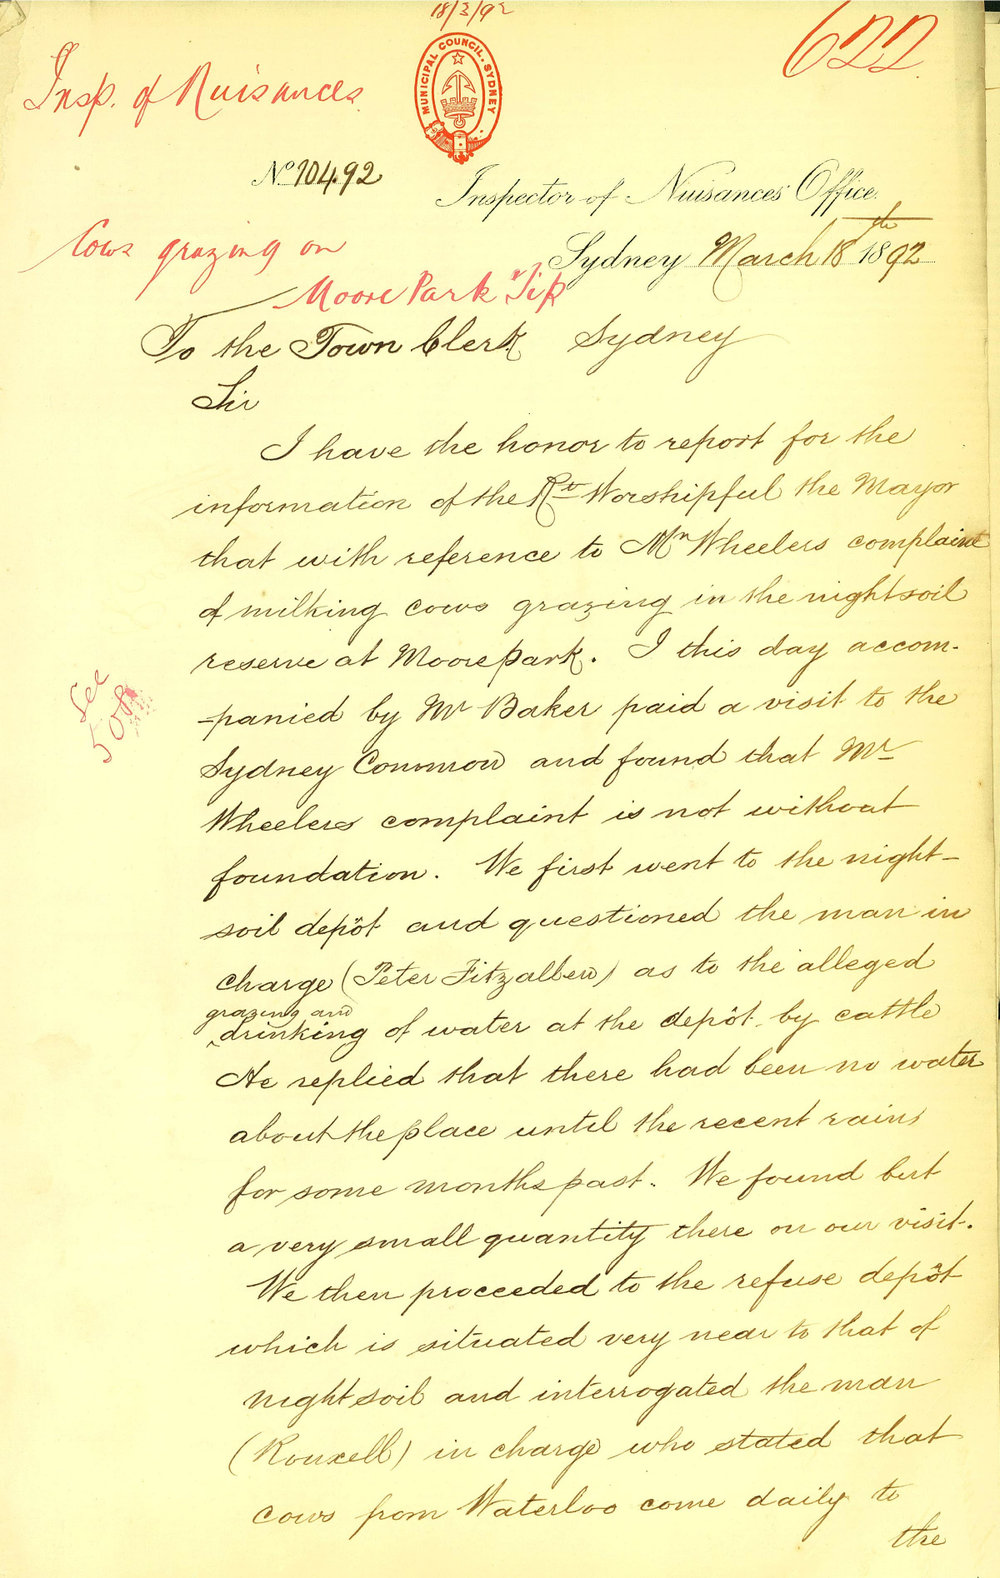 18/3/92
622
Insp. of Nuisances
MUNICIPAL COUNCIL. SYDNEY
No 104.92
Inspector of Nuisances' Office.
Cows grazing on
Moore Park Tip
Sydney March 18th 1892
To the Town Clerk Sydney
Sir
I have the honor to report for the
information of the Rt Worshipful the Mayor
that with reference to Mr Wheelers complaint
of milking cows grazing in the nightsoil
reserve at Moore park. I this day accom-
-panied by Mr Baker paid a visit to the
See
508
Sydney Common and found that Mr
Wheelers complaint is not without
foundation. We first went to the night-
soil depôt and questioned the man in
charge (Peter Fitzalben) as to the alleged
grazing and
drinking of water at the depôt by cattle
He replied that there had been no water
about the place until the recent rains
for some months past. We found but
a very small quantity there on our visit.
We then proceeded to the refuse depôt
which is situated very near to that of
nightsoil and interrogated the man
(Rouxell) in charge who stated that
cows from Waterloo come daily to
the